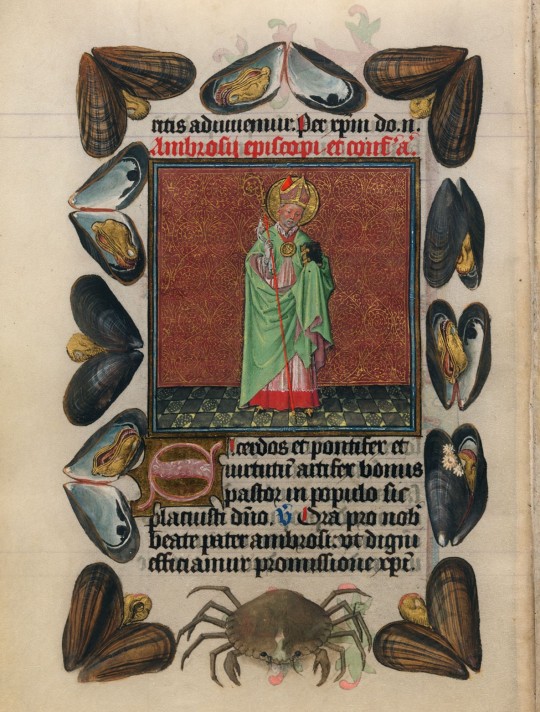 ritis adiuuemur. Per xpm do. n.
Ambrosij episcopi et conf. a.
Sacerdos et pontifex et
uirtutum artifex bonus
pastor in populo sic
placuisti dño. v Ora pro nob
beate pater ambrosi: vt digni
efficiamur promissione xpi.